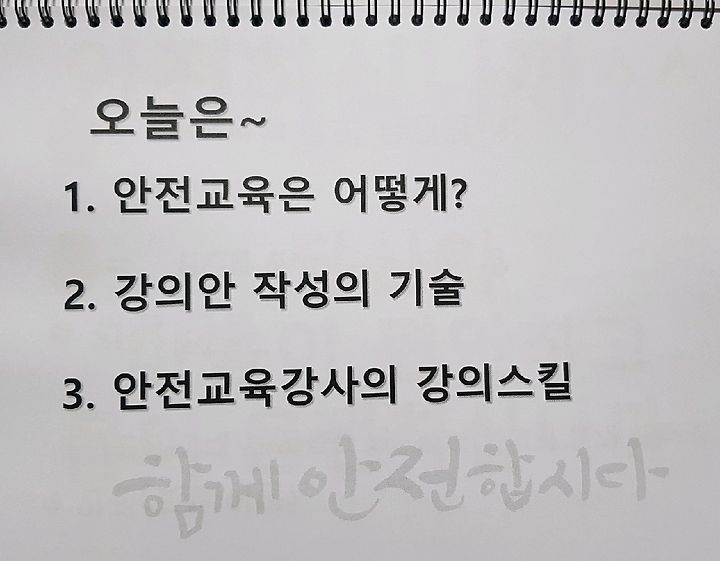 오늘은~
1. 안전교육은 어떻게?
2. 강의안 작성의 기술
3. 안전교육강사의 강의스킬
함께 안전합시다